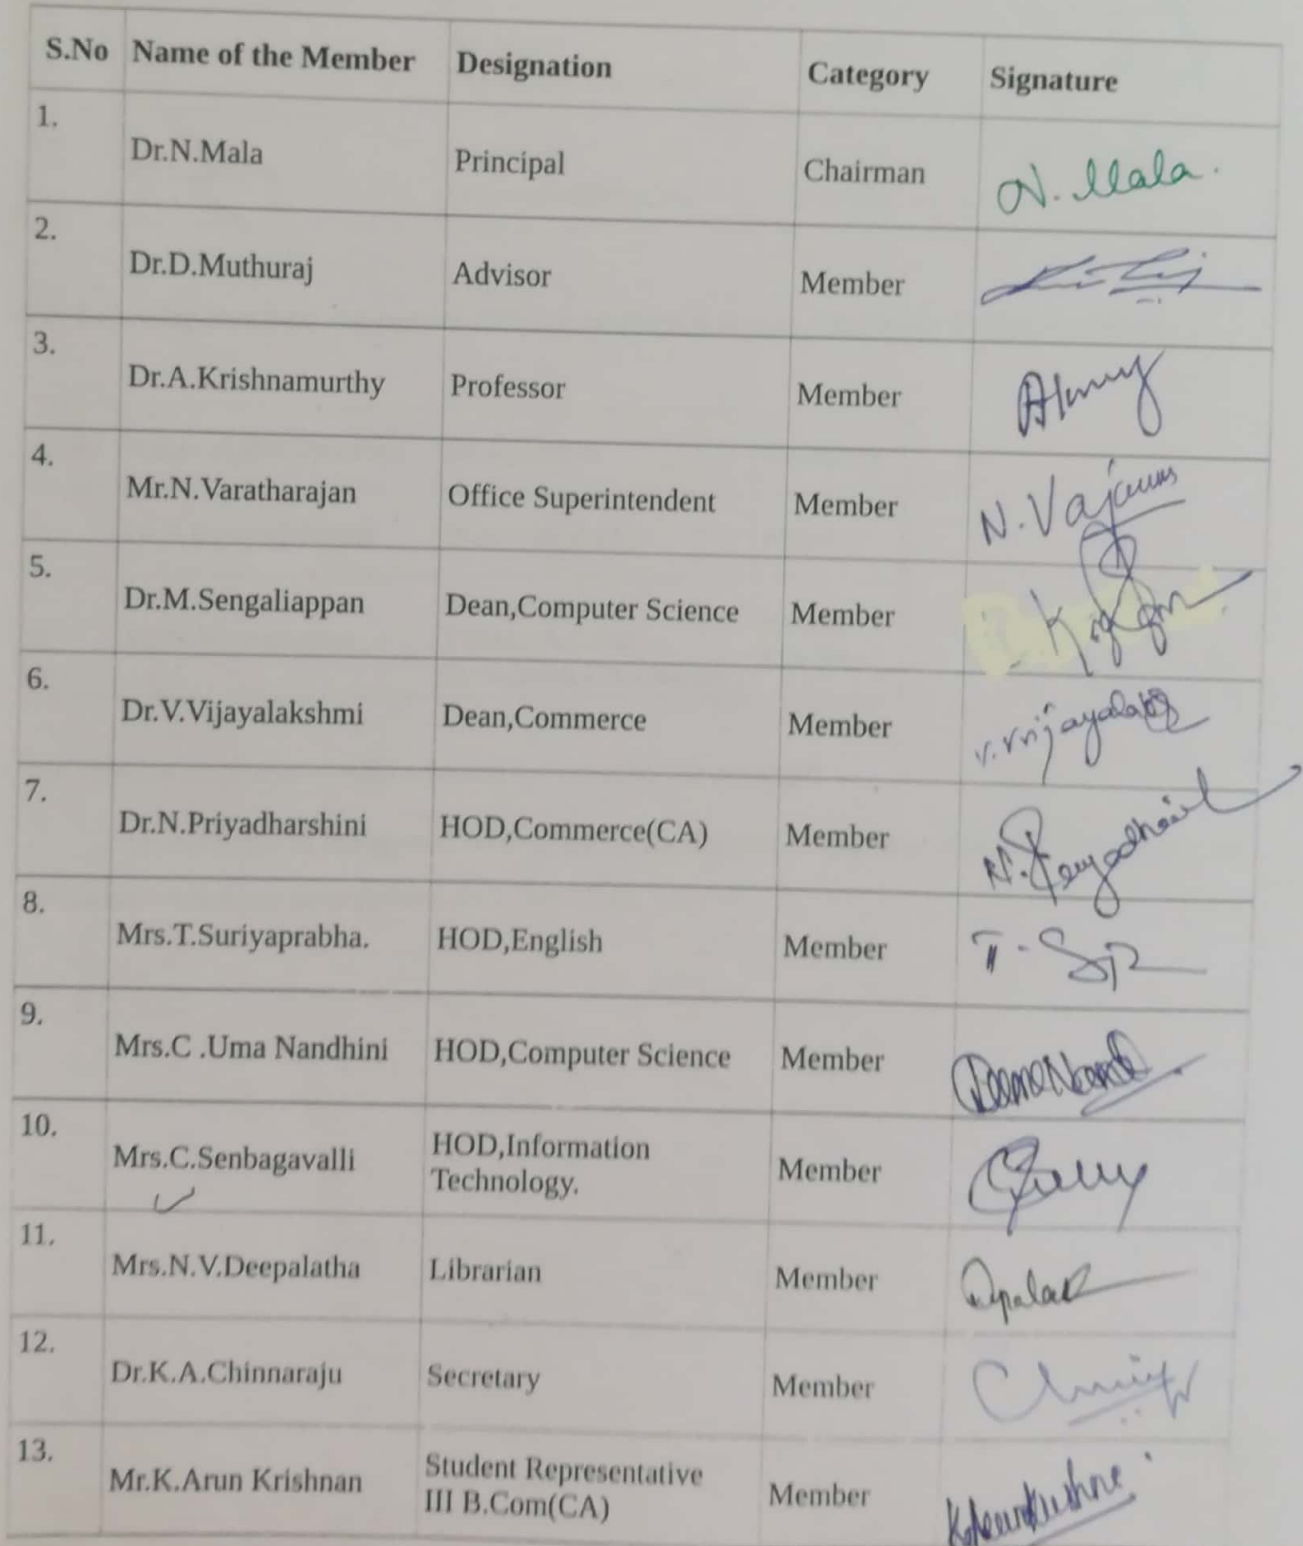 S.No Name of the Member Designation Category Signature
1. Dr.N.Mala Principal Chairman N. Mala.
2. Dr.D.Muthuraj Advisor Member
3. Dr.A.Krishnamurthy Professor Member
4. Mr.N.Varatharajan Office Superintendent Member
5. Dr.M.Sengaliappan Dean,Computer Science Member
6. Dr.V.Vijayalakshmi Dean,Commerce Member
7. Dr.N.Priyadharshini HOD,Commerce(CA) Member
8. Mrs.T.Suriyaprabha. HOD,English Member
9. Mrs.C .Uma Nandhini HOD,Computer Science Member
10. Mrs.C.Senbagavalli HOD,Information
Technology. Member
11. Mrs.N.V.Deepalatha Librarian Member
12. Dr.K.A.Chinnaraju Secretary Member
13. Mr.K.Arun Krishnan Student Representative
III B.Com(CA) Member